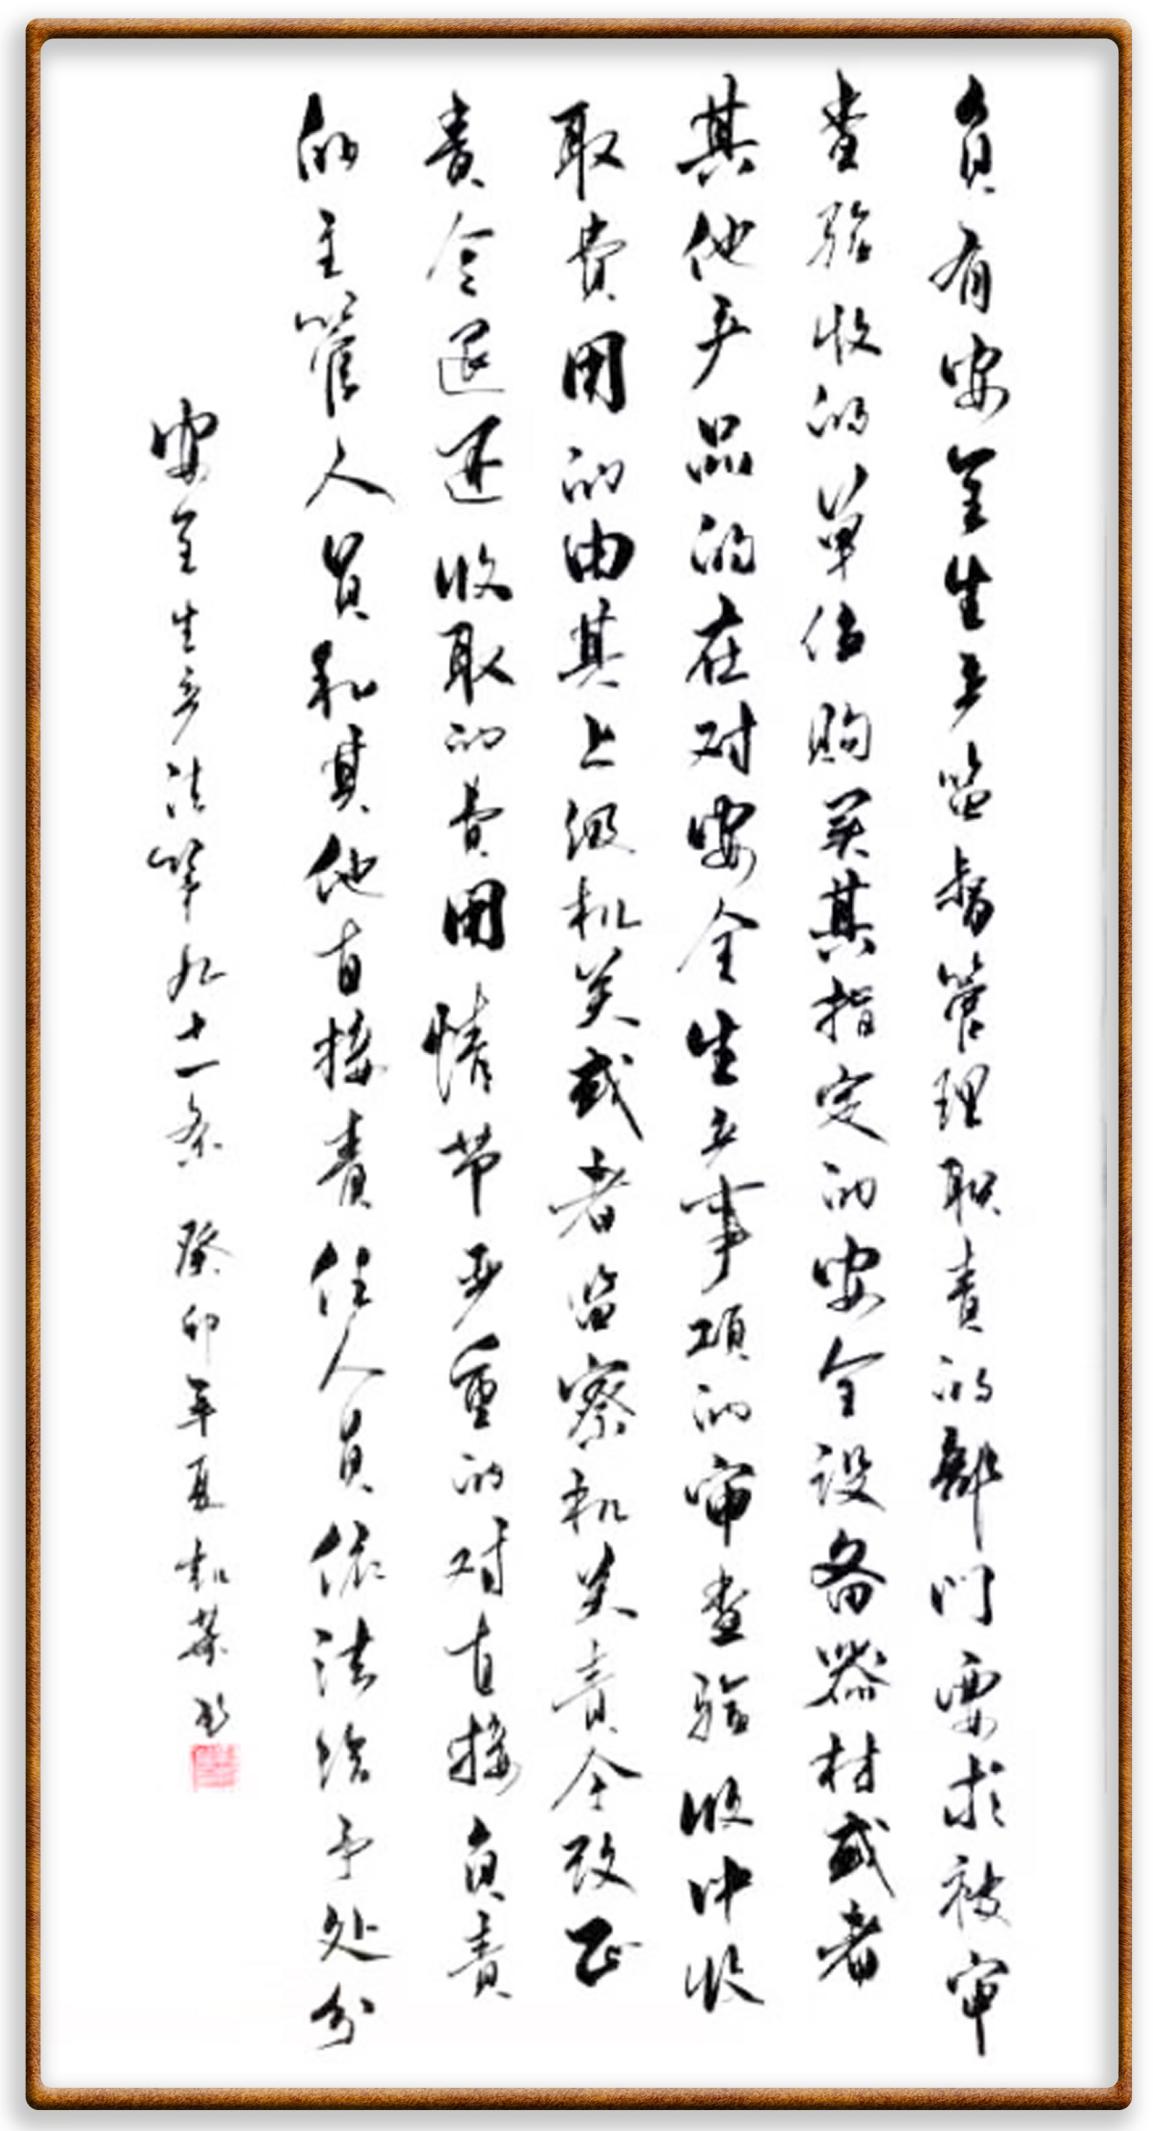 负有安全生产监督管理职责的部门要求被审
查验收的单位购买其指定的安全设备器材或者
其他产品的在对安全生产事项的审查验收中收
取费用的由其上级机关或者监察机关责令改正
责令退还收取的费用情节严重的对直接负责
的主管人员和其他直接责任人员依法给予处分
安全生产法第九十一条 癸卯年夏